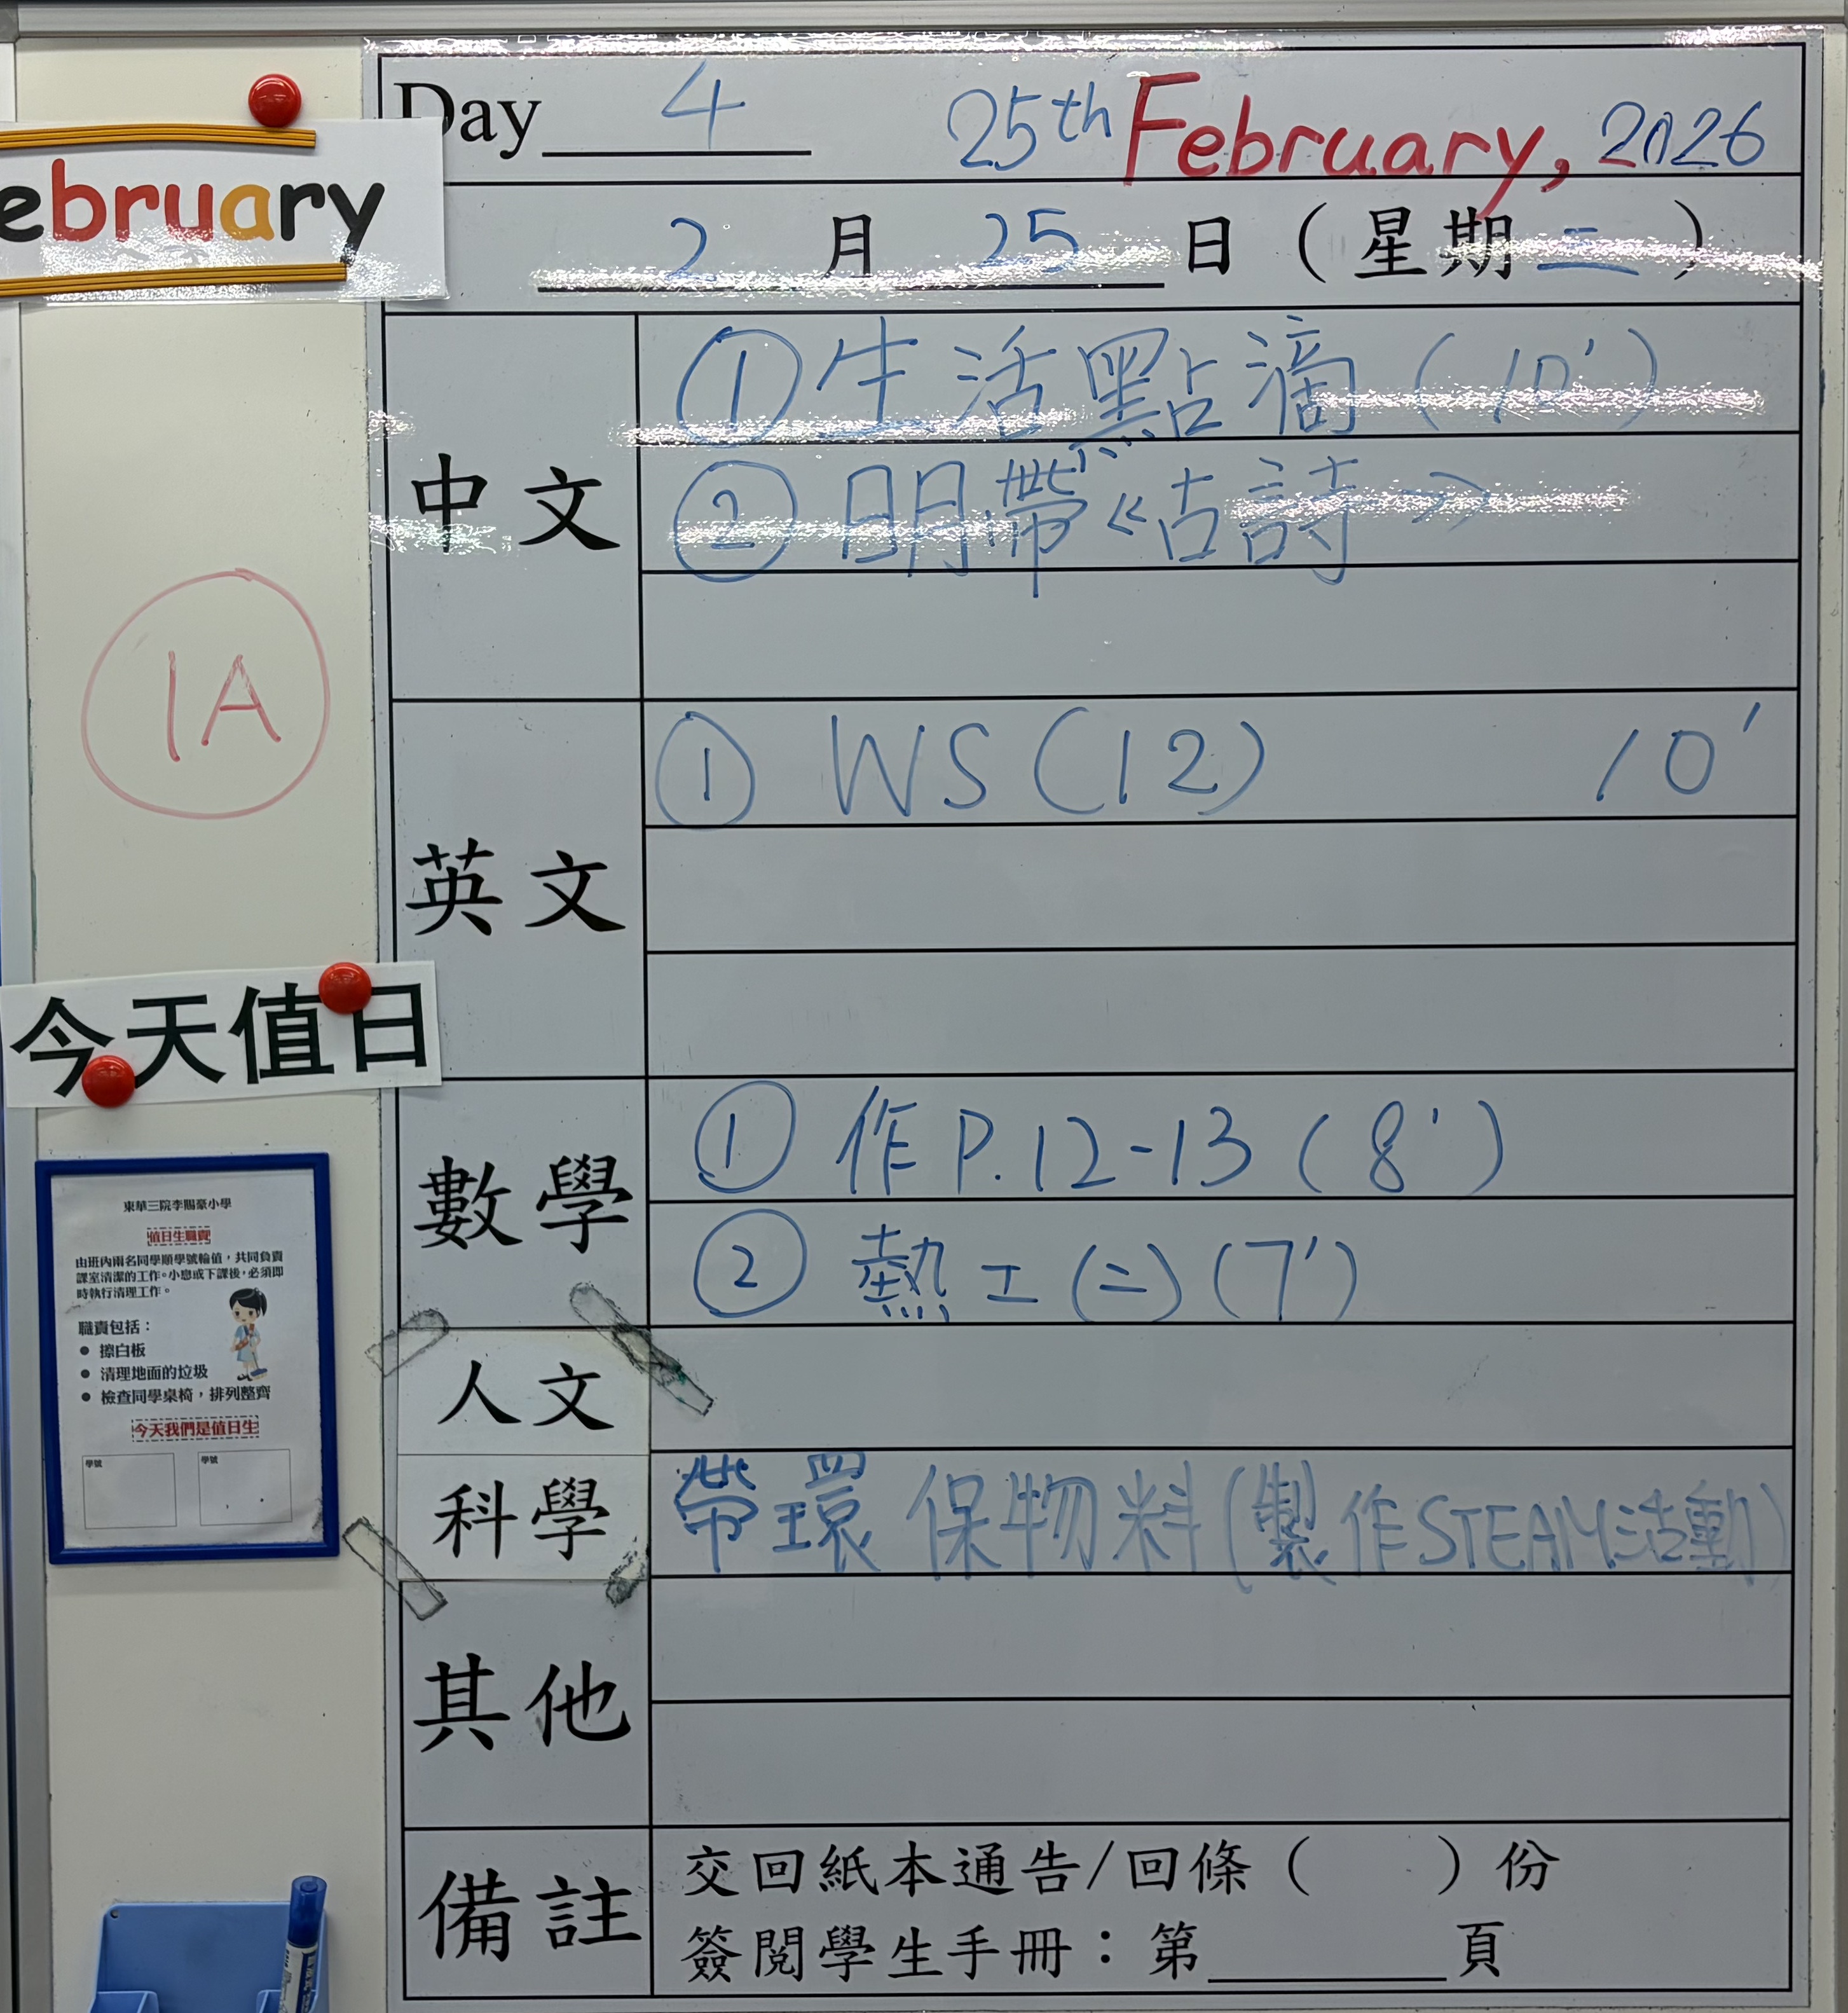 Day 4 25th February, 2026
ebruary
2 月 25 日 (星期二)
中文
①生活點滴(10')
②明帶《古詩》
1A
英文
① WS(12) 10'
今天值日
數學
① 作P.12-13(8')
② 熱工(二)(7')
人文
科學
帶環保物料(製作STEAM活動)
其他
備註
交回紙本通告/回條( )份
簽閱學生手冊:第____頁
東華三院李賜豪小學
值日生職責
由班內兩名同學順學號輪值,共同負責
課室清潔的工作。小息或下課後,必須即
時執行清理工作。
職責包括:
● 擦白板
● 清理地面的垃圾
● 檢查同學桌椅,排列整齊
今天我們是值日生
學號 學號